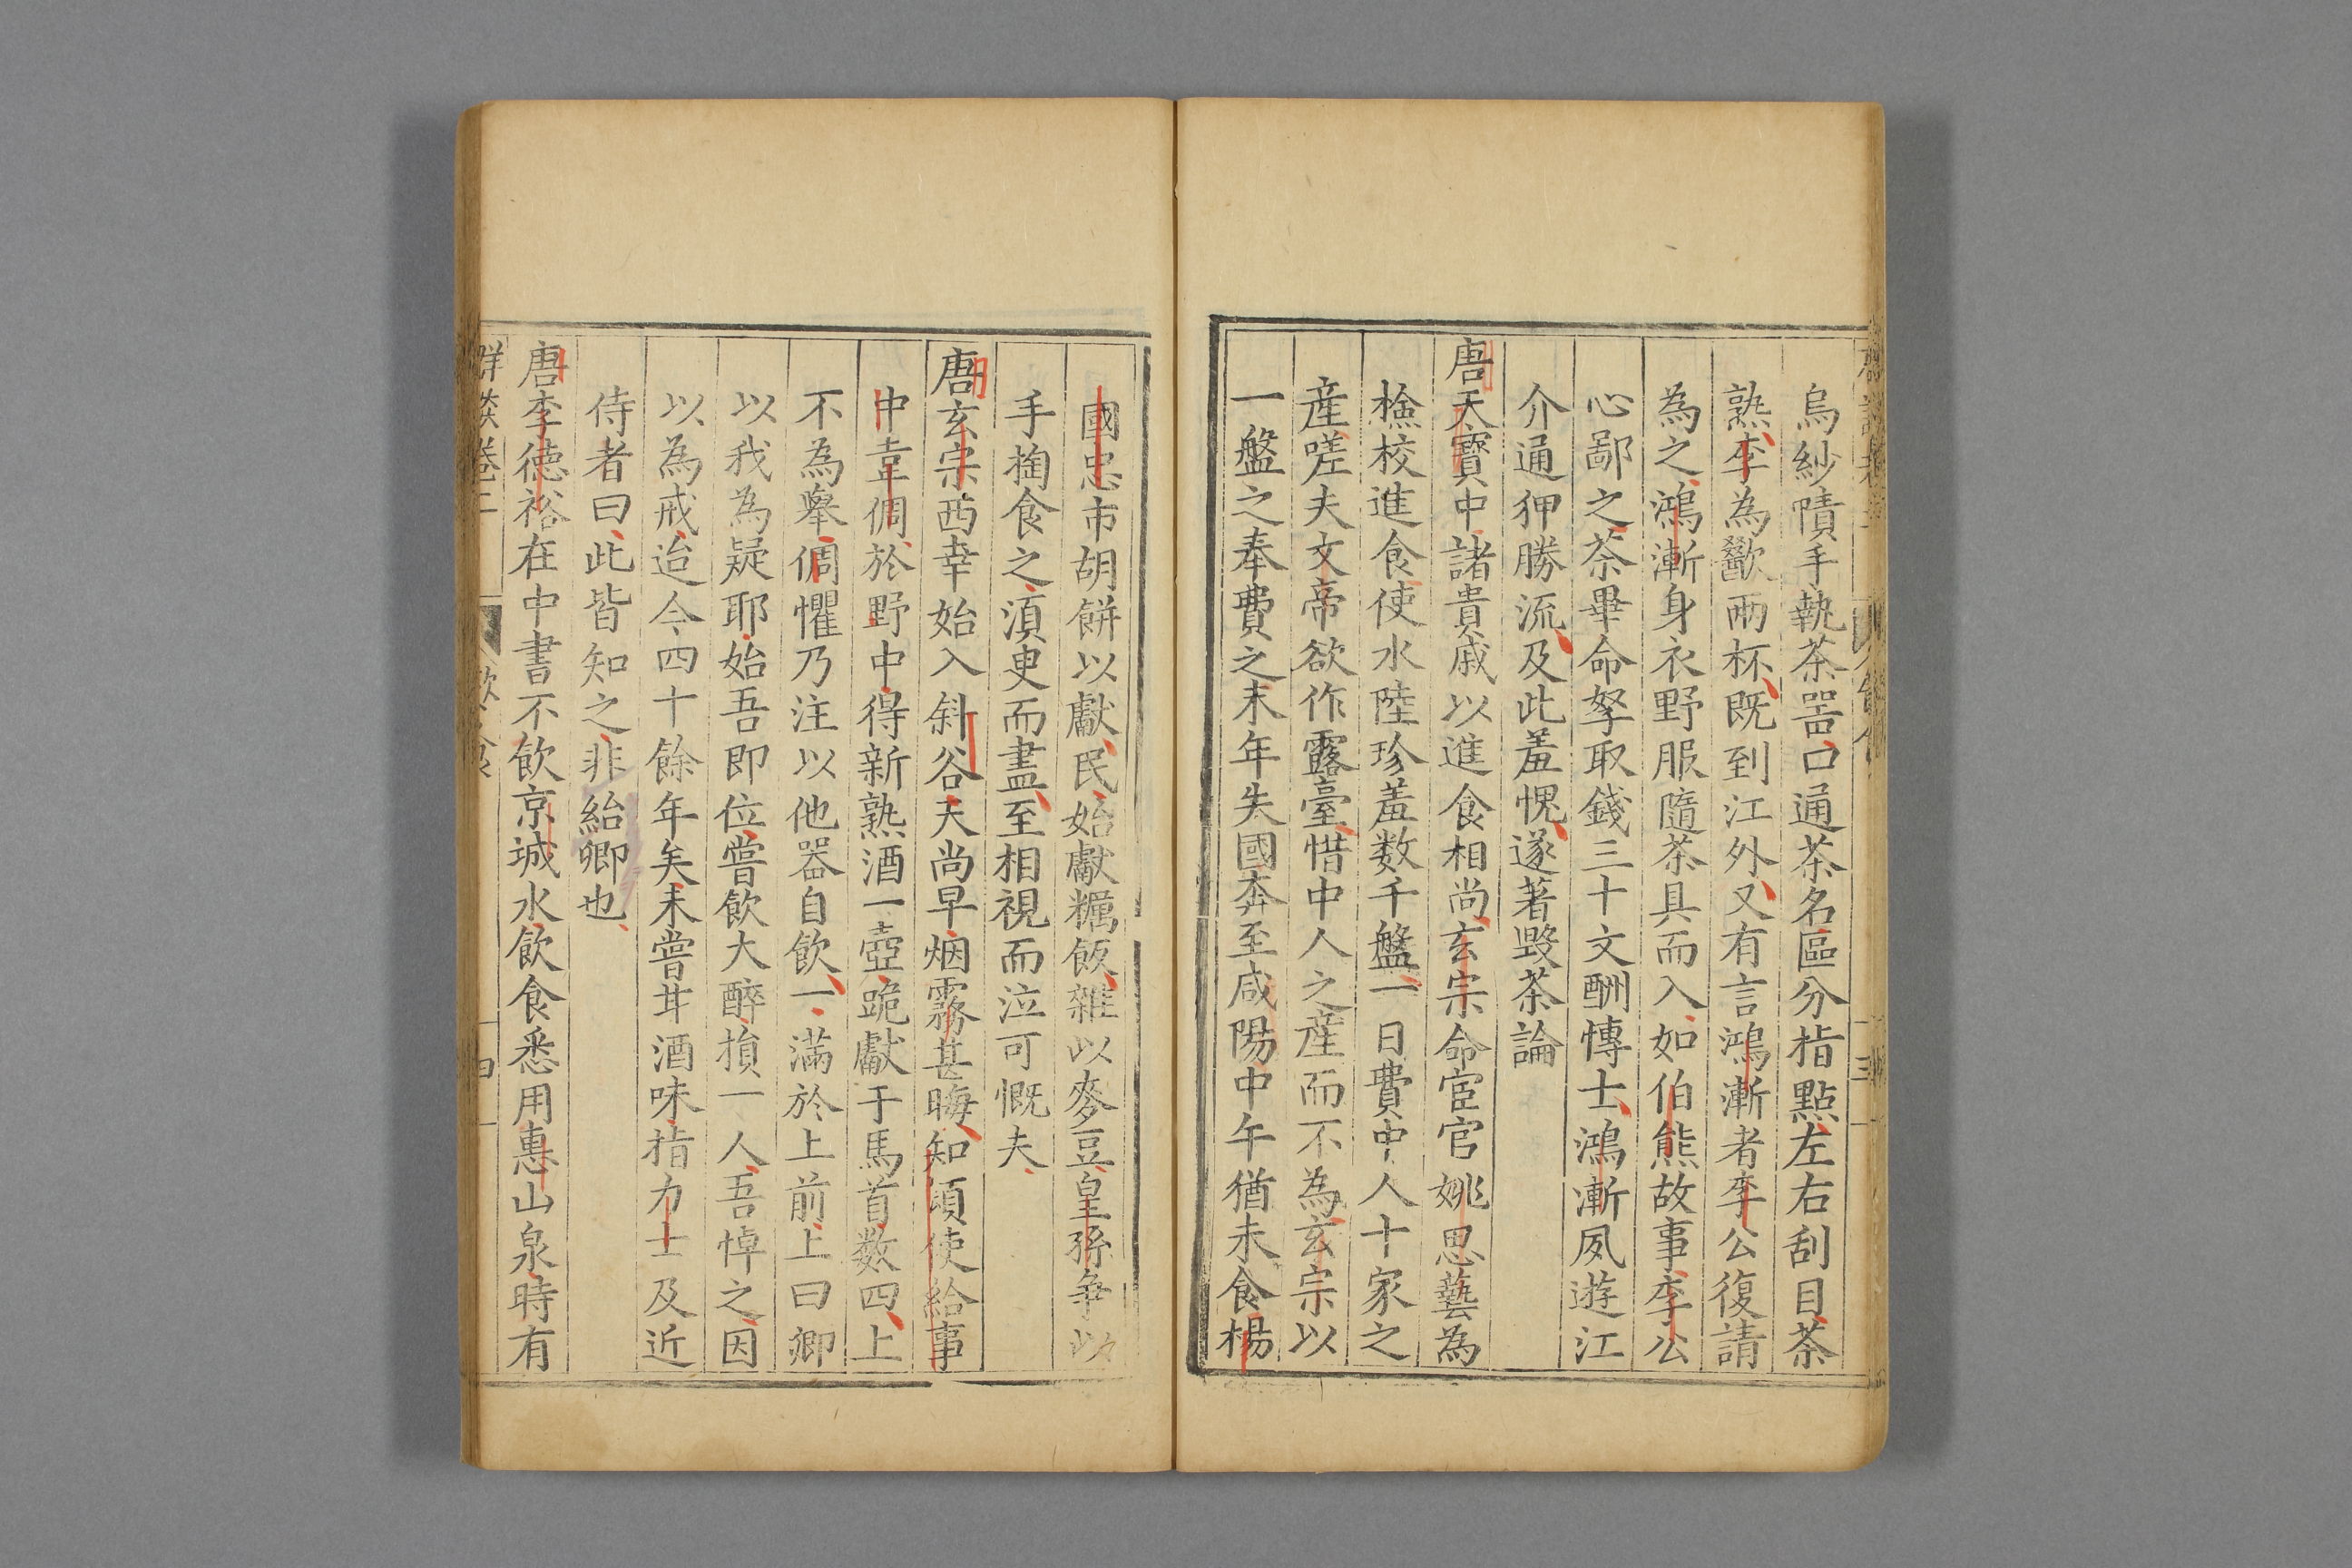 烏紗幘手執茶噐口通茶名區分指點左右刮目茶
熟李為歠兩杯既到江外又有言鴻漸者李公復請
為之鴻漸身衣野服隨茶具而入如伯熊故事李公
心鄙之茶畢命孥取錢三十文酬愽士鴻漸夙遊江
介通狎勝流及此羞愧遂著毀茶論
唐天寶中諸貴戚以進食相尚玄宗命宦官姚思藝為
檢校進食使水陸珍羞数千盤一日費中人十家之
産嗟夫文帝欲作露臺惜中人之産而不為玄宗以
一盤之奉費之末年失國奔至咸陽中午猶未食楊
國忠市胡餅以獻民始獻糲飯雜以麥豆皇孫争以
手掬食之湏臾而盡至相視而泣可慨夫
唐玄宗西幸始入斜谷天尚早烟霧甚晦知頓使給事
中韋倜於野中得新熟酒一壺跪獻于馬首数四上
不為舉倜懼乃注以他器自飲一滿於上前上曰卿
以我為疑耶始吾即位嘗飲大醉損一人吾悼之因
以為戒迨今四十餘年矣未嘗甘酒味指力士及近
侍者曰此皆知之非紿卿也
唐李德裕在中書不飲京城水飲食悉用惠山泉時有
群談卷二
飲食
四